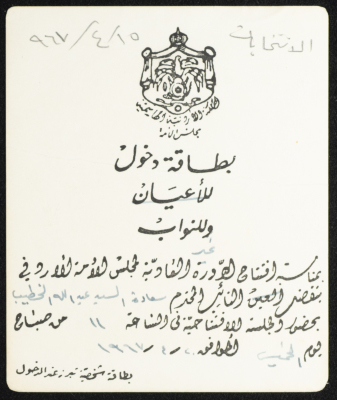 الانتخابات
٩٦٧/٤/١٥
المملكة الأردنية الهاشمية
مجلس الأمة
بطاقة دخول
للأعيان
وللنواب
غير
بمناسبة افتتاح الدورة العادية لمجلس الأمة الأردني
يتفضل العين النائب المحترم سعادة السيد عبدالله الخطيب
بحضور الجلسة الافتتاحية في الساعة ١١ من صباح
يوم الخميس الموافق ١٩٦٧/٤/٢٠
بطاقة شخصية تبرز عند الدخول